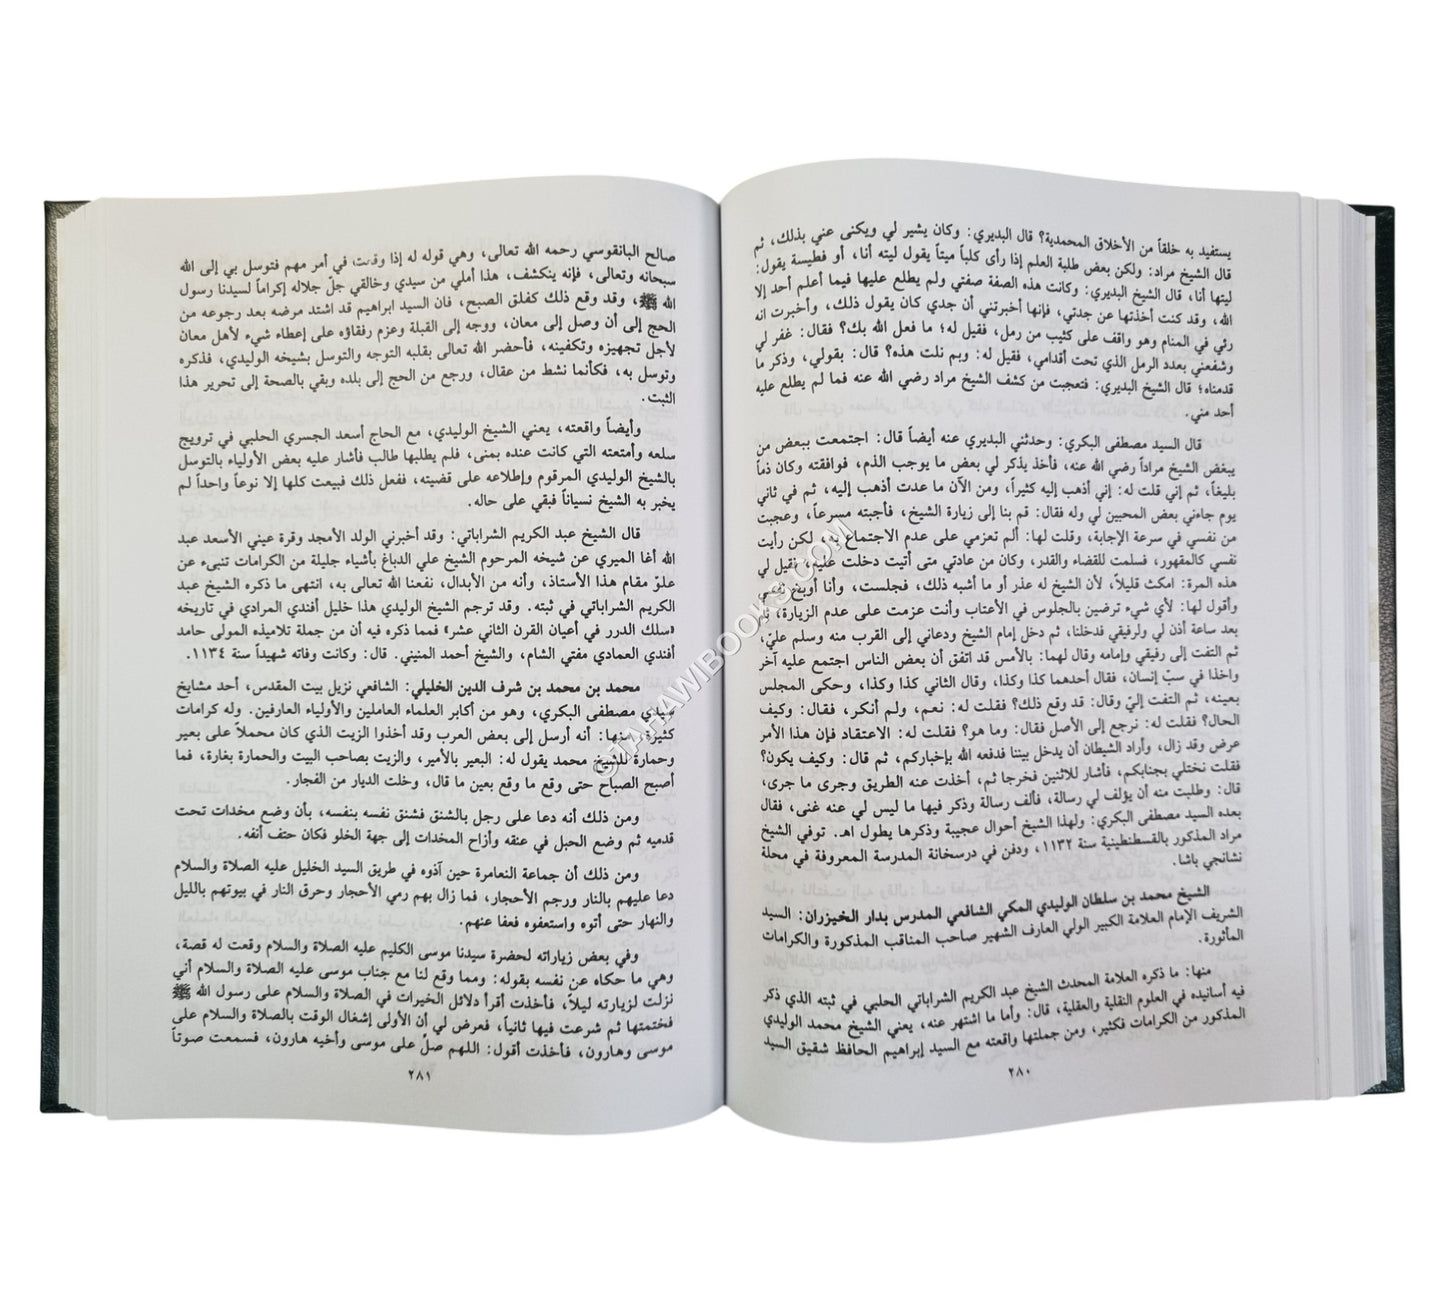 يستفيد به خلقاً من الأخلاق المحمدية؟ قال البديري: وكان يشير لي ويكنى عني بذلك، ثم
قال الشيخ مراد: ولكن بعض طلبة العلم إذا رأى كلباً ميتاً يقول ليته أنا، أو فطيسة يقول:
ليتها أنا، قال الشيخ البديري: وكانت هذه الصفة صفتي ولم يطلع عليها فيما أعلم أحد إلا
الله، وقد كنت أخذتها عن جدتي، فإنها أخبرتني أن جدي كان يقول ذلك، وأخبرت انه
رئي في المنام وهو واقف على كثيب من رمل، فقيل له؛ ما فعل الله بك؟ فقال: غفر لي
وشفعني بعدد الرمل الذي تحت أقدامي، فقيل له: وبم نلت هذه؟ قال: بقولي، وذكر ما
قدمناه؛ قال الشيخ البديري: فتعجبت من كشف الشيخ مراد رضي الله عنه فما لم يطلع عليه
أحد مني.
قال السيد مصطفى البكري: وحدثني البديري عنه أيضاً قال: اجتمعت ببعض من
يبغض الشيخ مراداً رضي الله عنه، فأخذ يذكر لي بعض ما يوجب الذم، فوافقته وكان ذماً
بليغاً، ثم إني قلت له: إني أذهب إليه كثيراً، ومن الآن ما عدت أذهب إليه، ثم في ثاني
يوم جاءني بعض المحبين لي وله فقال: قم بنا إلى زيارة الشيخ، فأجبته مسرعاً، وعجبت
من نفسي في سرعة الإجابة، وقلت لها: ألم تعزمي على عدم الاجتماع به، لكن رأيت
نفسي كالمقهور، فسلمت للقضاء والقدر، وكان من عادتي متى أتيت دخلت عليه، فقيل لي
هذه المرة: امكث قليلاً، لأن الشيخ له عذر أو ما أشبه ذلك، فجلست، وأنا أوبخ نفسي
وأقول لها: لأي شيء ترضين بالجلوس في الأعتاب وأنت عزمت على عدم الزيارة، ثم
بعد ساعة أذن لي ولرفيقي فدخلنا، ثم دخل إمام الشيخ ودعاني إلى القرب منه وسلم عليّ،
ثم التفت إلى رفيقي وإمامه وقال لهما: بالأمس قد اتفق أن بعض الناس اجتمع عليه آخر
واخذا في سبّ إنسان، فقال أحدهما كذا وكذا، وقال الثاني كذا وكذا، وحكى المجلس
بعينه، ثم التفت إليّ وقال: قد وقع ذلك؟ فقلت له: نعم، ولم أنكر، فقال: وكيف
الحال؟ فقلت له: نرجع إلى الأصل فقال: وما هو؟ فقلت له: الاعتقاد فإن هذا الأمر
عرض وقد زال، وأراد الشيطان أن يدخل بيننا فدفعه الله بإخباركم، ثم قال: وكيف يكون؟
فقلت نختلي بجنابكم، فأشار للاثنين فخرجا ثم، أخذت عنه الطريق وجرى ما جرى،
قال: وطلبت منه أن يؤلف لي رسالة، فألف رسالة وذكر فيها ما ليس لي عنه غنى، فقال
بعده السيد مصطفى البكري: ولهذا الشيخ أحوال عجيبة وذكرها يطول اهـ. توفي الشيخ
مراد المذكور بالقسطنطينية سنة ١١٣٢، ودفن في درسخانة المدرسة المعروفة في محلة
نشانجي باشا.
الشيخ محمد بن سلطان الوليدي المكي الشافعي المدرس بدار الخيزران: السيد
الشريف الإمام العلامة الكبير الولي العارف الشهير صاحب المناقب المذكورة والكرامات
المأثورة.
منها: ما ذكره العلامة المحدث الشيخ عبد الكريم الشراباتي الحلبي في ثبته الذي ذكر
فيه أسانيده في العلوم النقلية والعقلية، قال: وأما ما اشتهر عنه، يعني الشيخ محمد الوليدي
المذكور من الكرامات فكثير، ومن جملتها واقعته مع السيد إبراهيم الحافظ شقيق السيد
٢٨٠
صالح البانقوسي رحمه الله تعالى، وهي قوله له إذا وقعت في أمر مهم فتوسل بي إلى الله
سبحانه وتعالى، فإنه ينكشف، هذا أملي من سيدي وخالقي جلّ جلاله إكراماً لسيدنا رسول
الله ﷺ، وقد وقع ذلك كفلق الصبح، فان السيد ابراهيم قد اشتد مرضه بعد رجوعه من
الحج إلى أن وصل إلى معان، ووجه إلى القبلة وعزم رفقاؤه على إعطاء شيء لأهل معان
لأجل تجهيزه وتكفينه، فأحضر الله تعالى بقلبه التوجه والتوسل بشيخه الوليدي، فذكره
وتوسل به، فكأنما نشط من عقال، ورجع من الحج إلى بلده وبقي بالصحة إلى تحرير هذا
الثبت.
وأيضاً واقعته، يعني الشيخ الوليدي، مع الحاج أسعد الجسري الحلبي في ترويج
سلعه وأمتعته التي كانت عنده بمنى، فلم يطلبها طالب فأشار عليه بعض الأولياء بالتوسل
بالشيخ الوليدي المرقوم وإطلاعه على قضيته، ففعل ذلك فبيعت كلها إلا نوعاً واحداً لم
يخبر به الشيخ نسياناً فبقي على حاله.
قال الشيخ عبد الكريم الشراباتي: وقد أخبرني الولد الأمجد وقرة عيني الأسعد عبد
الله أغا الميري عن شيخه المرحوم الشيخ علي الدباغ بأشياء جليلة من الكرامات تنبىء عن
علوّ مقام هذا الأستاذ، وأنه من الأبدال، نفعنا الله تعالى به، انتهى ما ذكره الشيخ عبد
الكريم الشراباتي في ثبته. وقد ترجم الشيخ الوليدي هذا خليل أفندي المرادي في تاريخه
«سلك الدرر في أعيان القرن الثاني عشر» فمما ذكره فيه أن من جملة تلاميذه المولى حامد
أفندي العمادي مفتي الشام، والشيخ أحمد المنيني. قال: وكانت وفاته شهيداً سنة ١١٣٤.
محمد بن محمد بن شرف الدين الخليلي: الشافعي نزيل بيت المقدس، أحد مشايخ
سيدي مصطفى البكري، وهو من أكابر العلماء العاملين والأولياء العارفين. وله كرامات
كثيرة منها: أنه أرسل إلى بعض العرب وقد أخذوا الزيت الذي كان محملاً على بعير
وحمارة للشيخ محمد يقول له: البعير بالأمير، والزيت بصاحب البيت والحمارة بغارة، فما
أصبح الصباح حتى وقع ما وقع بعين ما قال، وخلت الديار من الفجار.
ومن ذلك أنه دعا على رجل بالشنق فشنق نفسه بنفسه، بأن وضع مخدات تحت
قدميه ثم وضع الحبل في عنقه وأزاح المخدات إلى جهة الخلو فكان حتف أنفه.
ومن ذلك أن جماعة النعامرة حين آذوه في طريق السيد الخليل عليه الصلاة والسلام
دعا عليهم بالنار ورجم الأحجار، فما زال بهم رمي الأحجار وحرق النار في بيوتهم بالليل
والنهار حتى أتوه واستعفوه فعفا عنهم.
وفي بعض زياراته لحضرة سيدنا موسى الكليم عليه الصلاة والسلام وقعت له قصة،
وهي ما حكاه عن نفسه بقوله: ومما وقع لنا مع جناب موسى عليه الصلاة والسلام أني
نزلت لزيارته ليلاً، فأخذت أقرأ دلائل الخيرات في الصلاة والسلام على رسول الله ﷺ
فختمتها ثم شرعت فيها ثانياً، فعرض لي أن الأولى إشغال الوقت بالصلاة والسلام على
موسى وهارون، فأخذت أقول: اللهم صلّ على موسى وأخيه هارون، فسمعت صوتاً
٢٨١
©TAHAWIBOOKS.COM